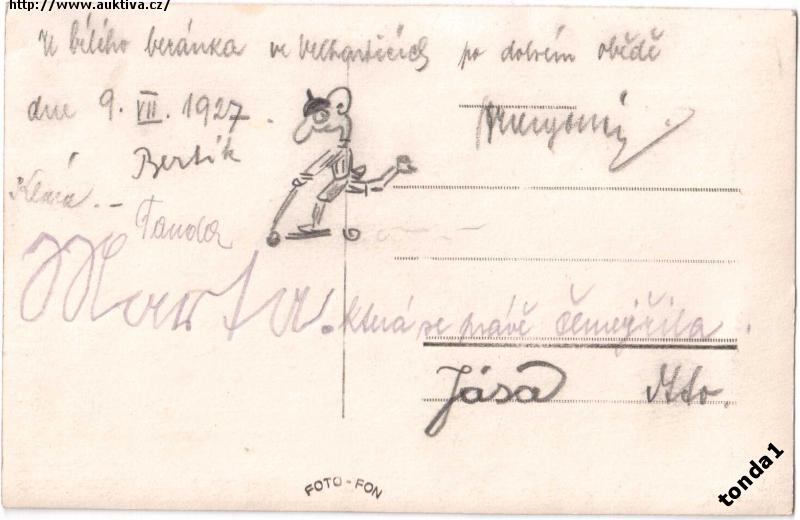 http://www.auktiva.cz/
U bílého beránka ve Velharticích po dobrém obědě
dne 9. VII. 1927.
Bertík
Klára.-
Tonda
Marta. která se právě
Jása Oto.
FOTO-FON
tonda1